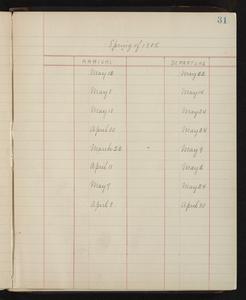 31
Spring of 1908
ARRIVAL DEPARTURE
May 18 May 22
May 8 May 14
May 12 May 24
April 20 May 24
March 22 " May 9
April 11 May 2
May 7 May 24
April 8 April 30